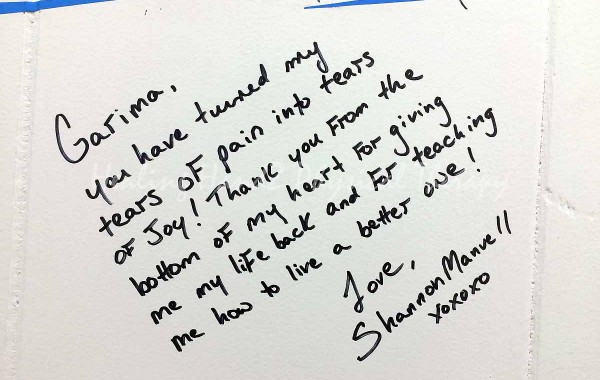 Garima,
you have turned my
tears of pain into tears
of Joy! Thank you From the
bottom of my heart For giving
me my life back and For teaching
me how to live a better one!
Love,
Shannon Manuell
xoxoxo